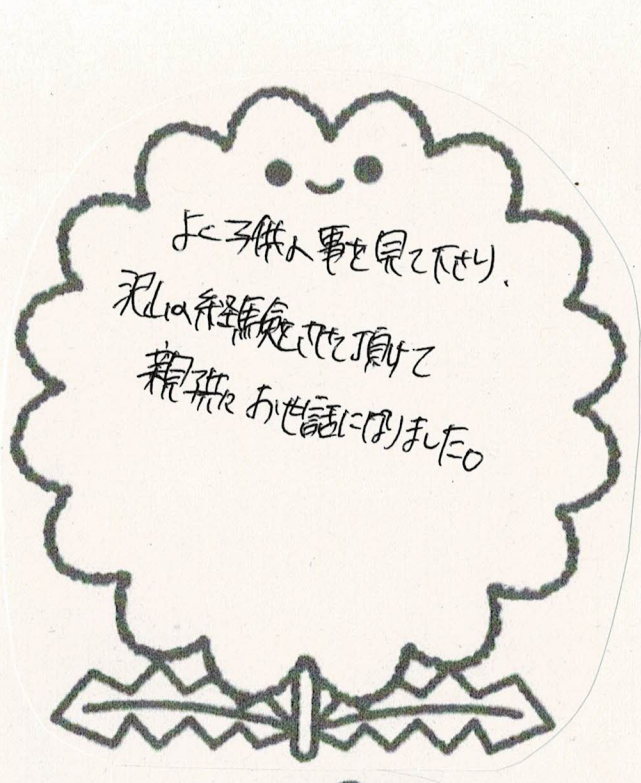 よく子供の事を見て下さり、
沢山の経験をさせて頂けて
親子共々お世話になりました。